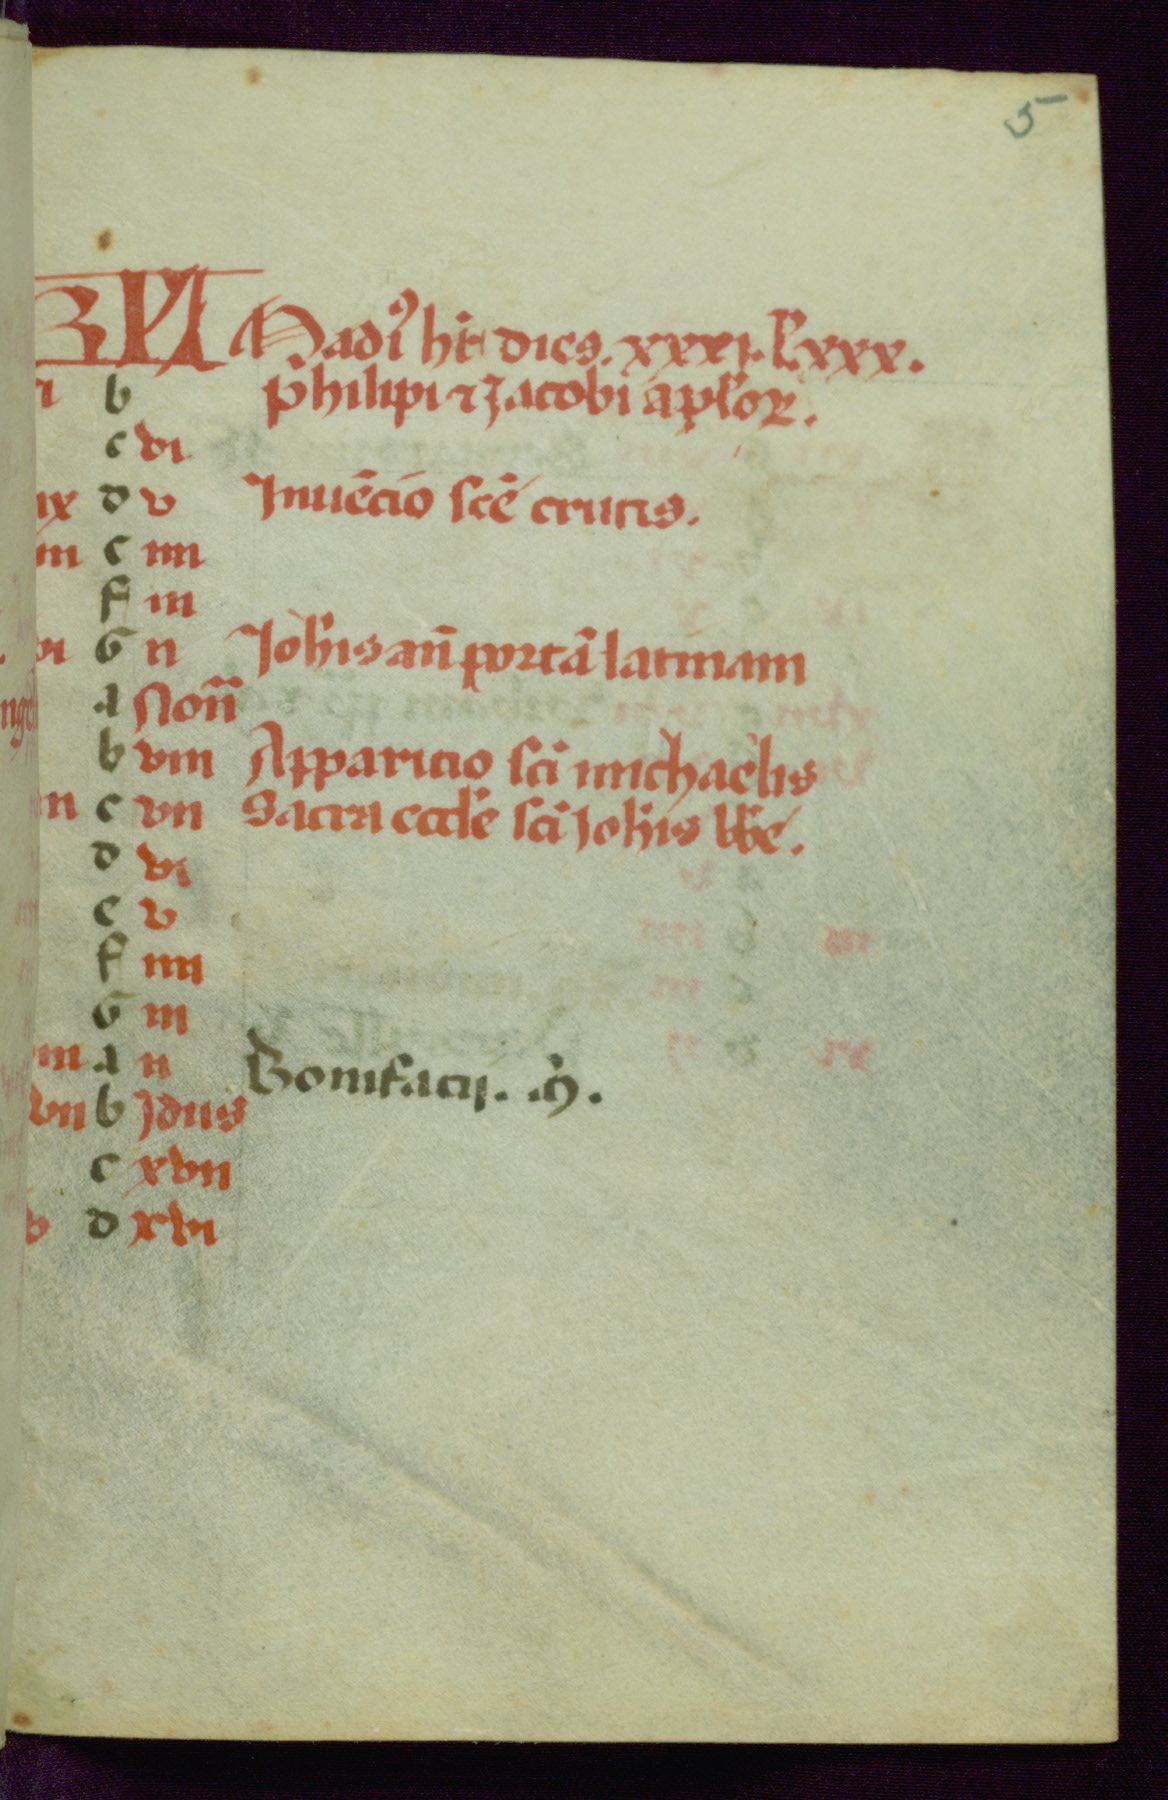 5
KL Madi9 ht dies. xxxi. l'xxx.
b philipi ⁊ Jacobi apl'oꝝ.
c vi
ix d v Inuēcio scē crucis.
e iiii
f iii
vi G ii Joh'is an̄ portā latinam
A Non̄
b viii Apparicio sci michaelis
c vii Sacra eccl'e sci Joh'is
d vi
e v
f iiii
G iii
A ii Bonifacij. m̄.
vii b Idus
c xvii
v d xvi